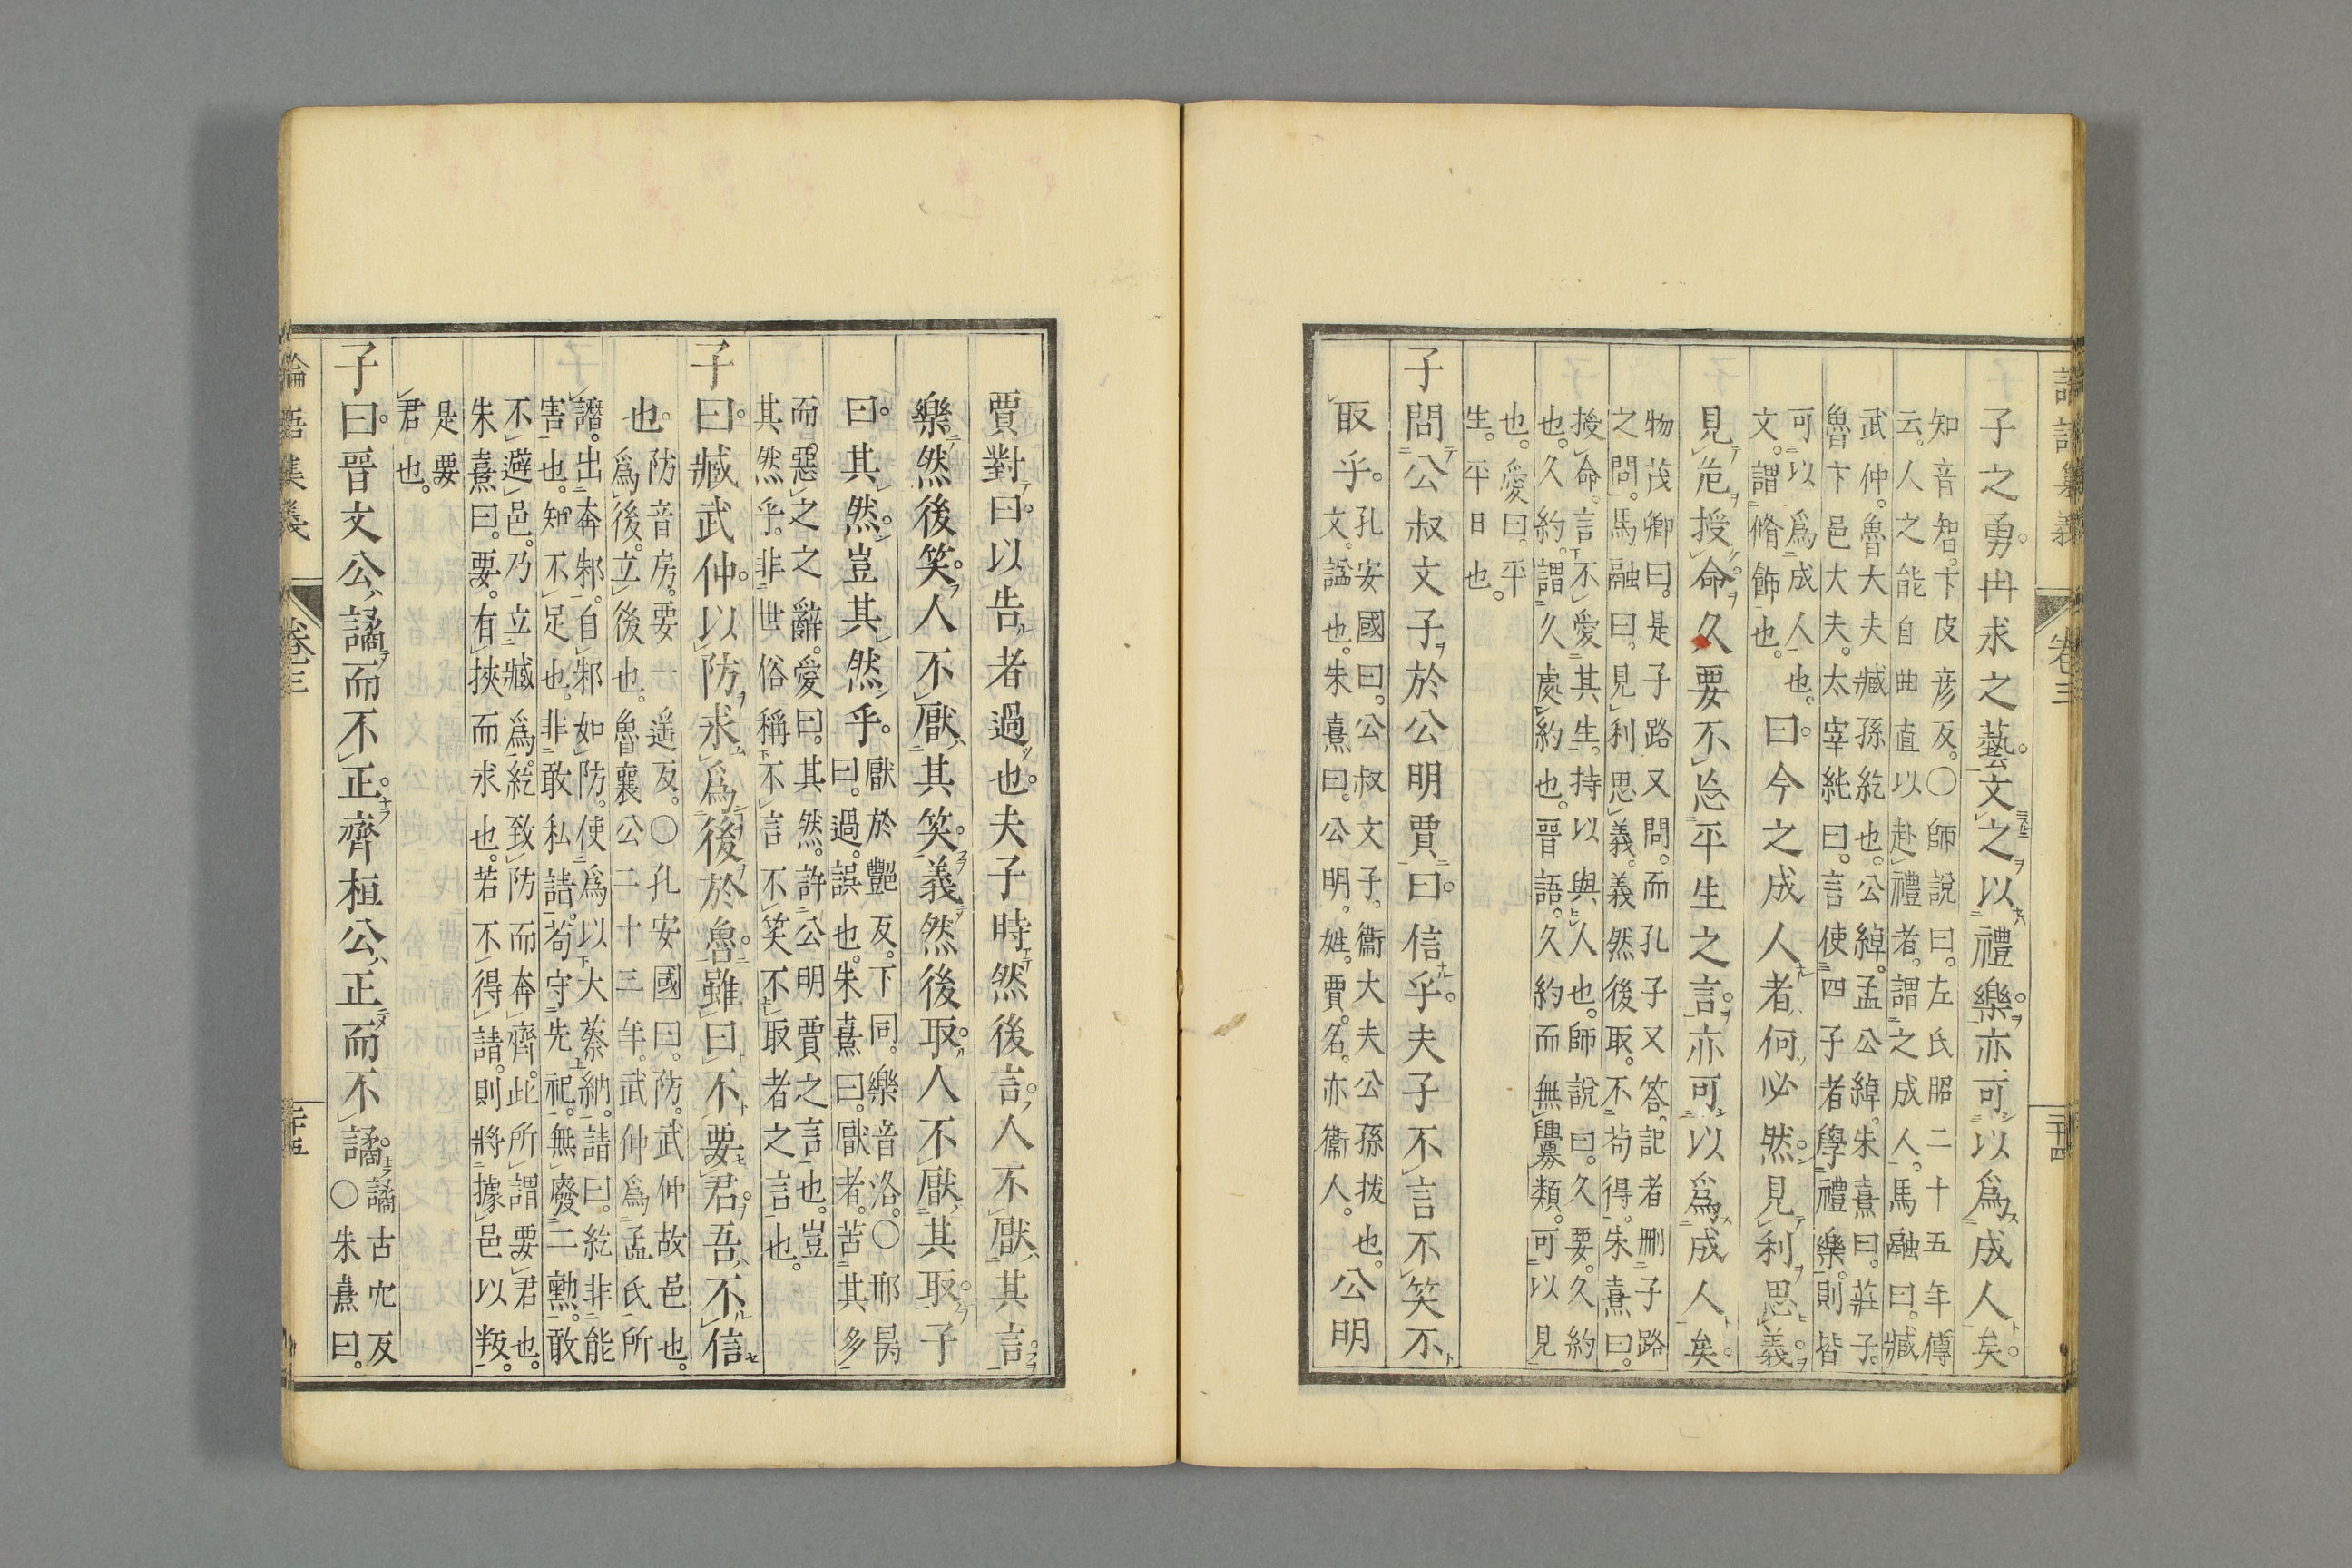 論語集義 卷三 三十四
子之勇。冉求之藝。文之以禮樂。亦可以爲成人矣。
知音智。卞皮彦反。〇師說曰。左氏昭二十五年傳
云。人之能自曲直以赴禮者。謂之成人。馬融曰。臧
武仲。魯大夫臧孫紇也。公綽。孟公綽。朱熹曰。莊子。
魯卞邑大夫。太宰純曰。言使四子者學禮樂。則皆
可以爲成人也。
文。謂脩飾也。
曰。今之成人者。何必然。見利思義。
見危授命。久要不忘平生之言。亦可以爲成人矣。
物茂卿曰。是子路又問。而孔子又答。記者刪子路
之問。馬融曰。見利思義。義然後取。不苟得。朱熹曰。
授命。言不愛其生。持以與人也。師說曰。久要。久約
也。久約。謂久處約也。晉語。久約而無釁類。可以見
也。愛曰。平
生。平日也。
子問公叔文子於公明賈曰。信乎。夫子不言不笑不
取乎。
孔安國曰。公叔文子。衞大夫公孫拔也。
文。謚也。朱熹曰。公明。姓。賈。名。亦衞人。
公明
賈對曰。以告者過也。夫子時然後言。人不厭其言。
樂然後笑。人不厭其笑。義然後取。人不厭其取。子
曰。其然。豈其然乎。
厭於豔反。下同。樂音洛。〇邢昺
曰。過。誤也。朱熹曰。厭者。苦其多
而惡之之辭。愛曰。其然。許公明賈之言也。豈
其然乎。非世俗稱不言不笑不取者之言也。
子曰。臧武仲。以防求爲後於魯。雖曰不要君。吾不信
也。
防音房。要一遥反。〇孔安國曰。防。武仲故邑也。
爲後。立後也。魯襄公二十三年。武仲爲孟氏所
譖。出奔邾。自邾如防。使爲以大蔡納。請曰。紇非能
害也。知不足也。非敢私請。苟守先祀。無廢二勳。敢
不避邑。乃立臧爲。紇致防而奔齊。此所謂要君也。
朱熹曰。要。有挾而求也。若不得請。則將據邑以叛。
是要
君也。
子曰。晉文公譎而不正。齊桓公正而不譎。
譎古穴反
〇朱熹曰。
論語集義 卷三 三十五